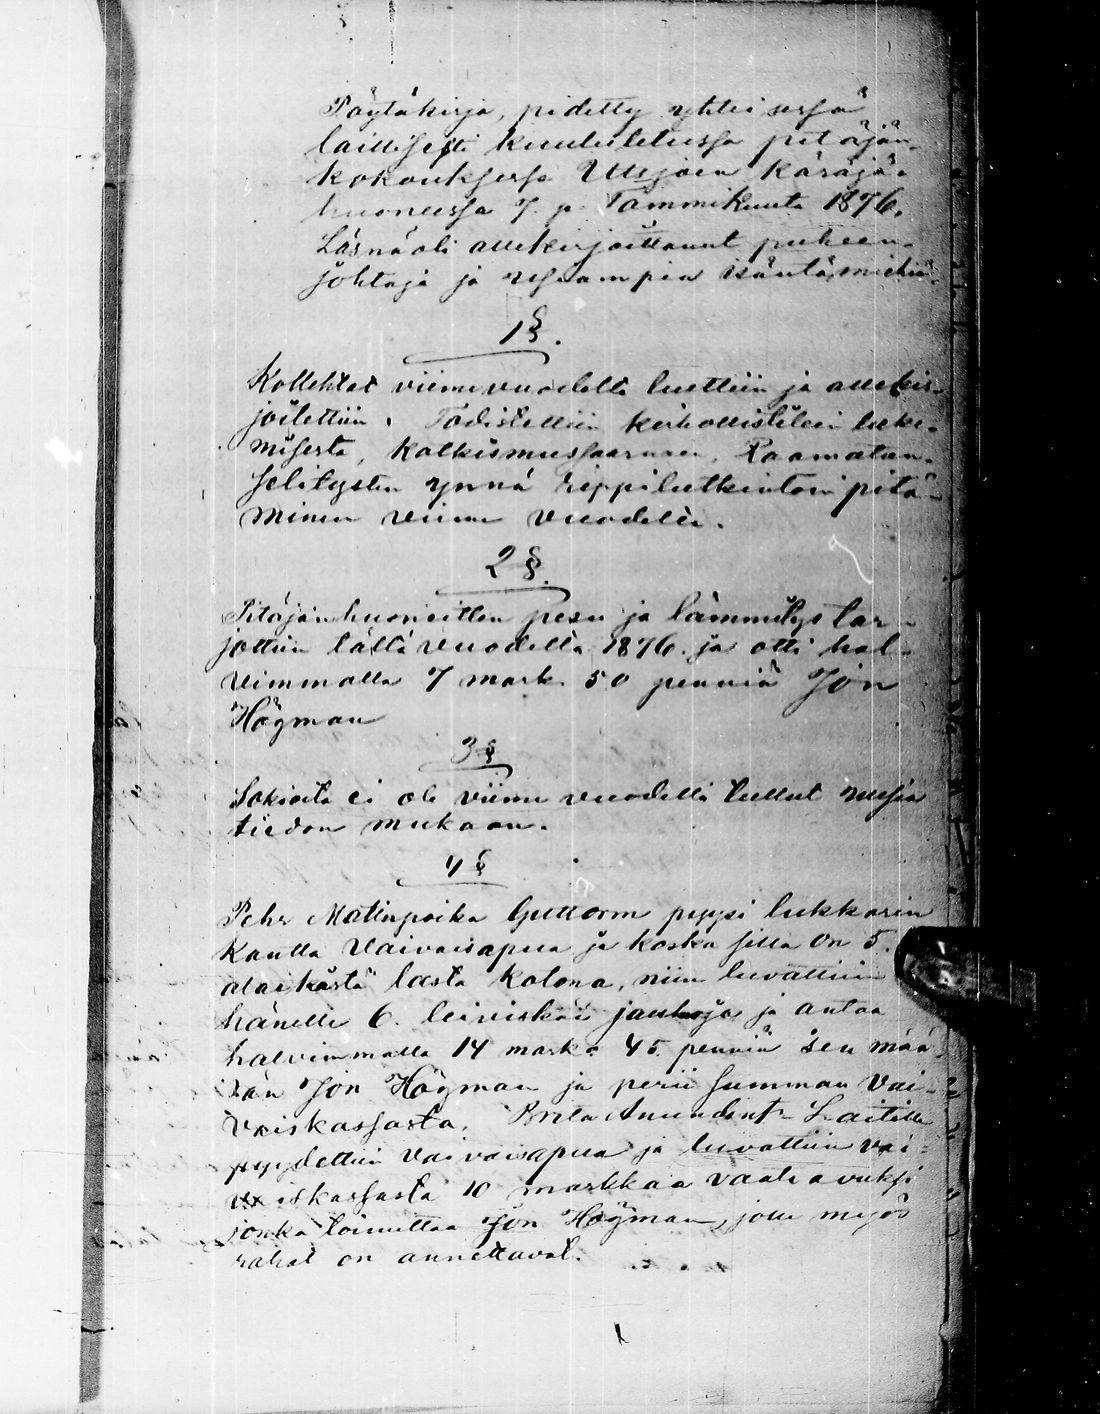 Pöytäkirja, pidetty yhteisessä
laillisesti kuulutetussa pitäjän-
kokouksessa Utsjoen Käräjä-
huoneessa 7. p. Tammikuuta 1876.
Läsnä oli allekirjoittanut puheen-
johtaja ja useampia isäntämiehiä.
1 §.
Kollehtat viime vuodelta luettiin ja allekir-
joitettiin. Todistettiin kirkollistilein luke-
misesta, Katkismussaarnan, Raamatun-
selitysten ynnä rippilutkintoin pitä-
minen viime vuodella.
2 §.
Pitäjänhuoneitten pesu ja lämmitys tar-
jottiin tällä vuodella 1876. ja otti hal-
vimmalla 7 mark. 50 penniä Jon
Högman
3 §
Sokioita ei ole viime vuodella tullut uusia
tiedon mukaan.
4 §
Pehr Matinpoika Guttorm pyysi lukkarin
kautta Vaivaisapua ja koska sillä on 5.
alaikästä lasta kotona, niin luvattiin
hänelle 6. leiviskää jauhoja ja antaa
halvimmalla 14 markka 45. penniä sen mää-
rän Jon Högman ja perii summan Vai-
vaiskassasta. Brita Amundint. Laitille
pyydettiin Vaivaisapua ja luvattiin vai-
vaiskassasta 10 markkaa vaateavuksi
jonka toimittaa Jon Högman, jolle myös
rahat on annettavat.